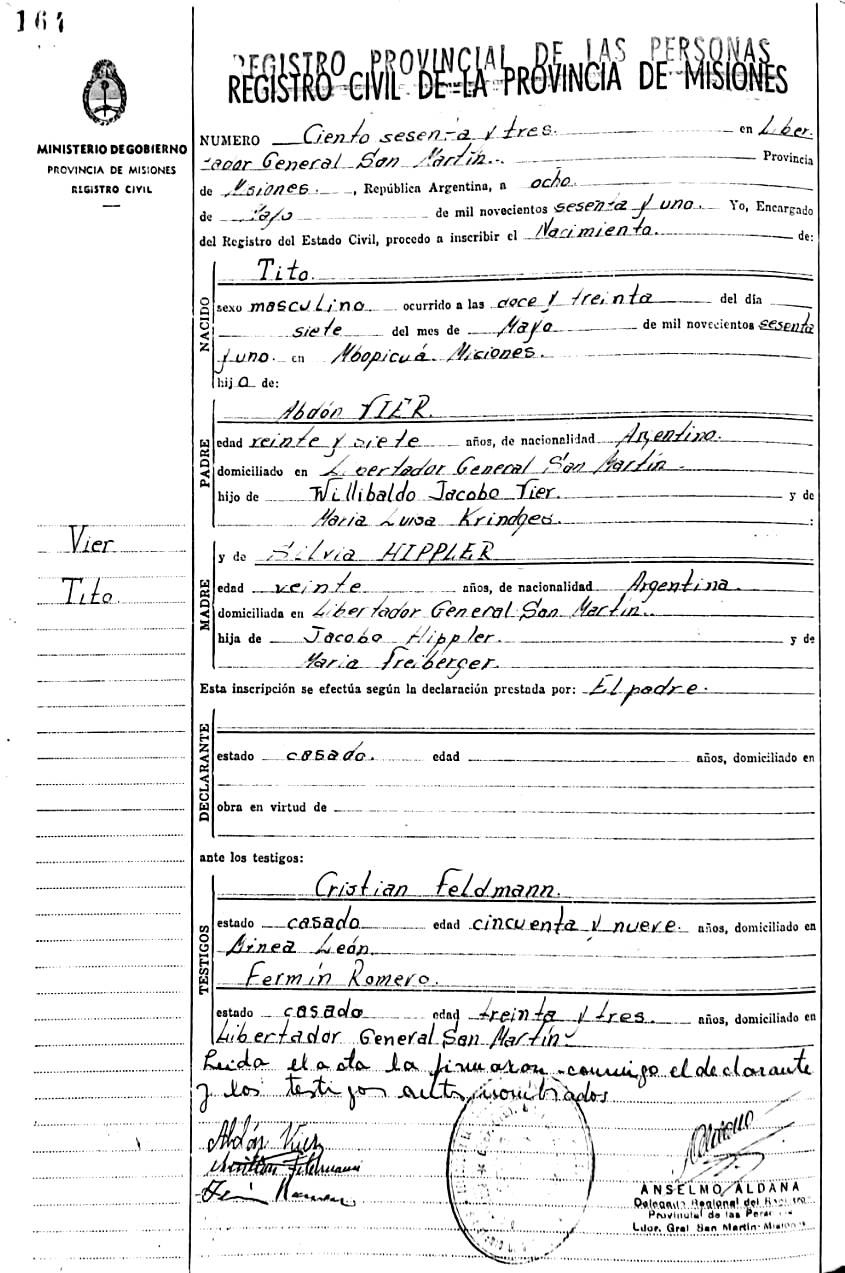 164
MINISTERIO DE GOBIERNO
PROVINCIA DE MISIONES
REGISTRO CIVIL
REGISTRO PROVINCIAL DE LAS PERSONAS
REGISTRO CIVIL DE LA PROVINCIA DE MISIONES
NUMERO Ciento sesenta y tres. en Liber.
tador General San Martín. Provincia
de Misiones. , República Argentina, a ocho.
de Mayo de mil novecientos sesenta y uno. Yo, Encargado
del Registro del Estado Civil, procedo a inscribir el Nacimiento. de:
NACIDO
Tito.
sexo masculino ocurrido a las doce y treinta del día
siete del mes de Mayo de mil novecientos sesenta
y uno. en Mbopicuá. Misiones.
hijo de:
PADRE
Abdón VIER.
edad veinte y siete años, de nacionalidad Argentino.
domiciliado en Libertador General San Martín.
hijo de Willibaldo Jacobo Vier. y de
Maria Luisa Krindges. :
Vier
Tito.
MADRE
y de Silvia HIPPLER
edad veinte años, de nacionalidad Argentina.
domiciliada en Libertador General San Martín.
hija de Jacobo Hippler. y de
Maria Freiberger.
Esta inscripción se efectúa según la declaración prestada por: El padre.
DECLARANTE
estado casado. edad años, domiciliado en
obra en virtud de
ante los testigos:
TESTIGOS
Cristian Feldmann.
estado casado edad cincuenta y nueve. años, domiciliado en
León.
Fermín Romero.
estado casado edad treinta y tres. años, domiciliado en
Libertador General San Martín
Leida el acta la firmaron conmigo el declarante
y los testigos antes nombrados
Abdón Vier
Cristian Feldmann
ANSELMO ALDANA
Delegado Regional del Registro
Provincial de las Personas
Ldor. Gral San Martín-Misiones